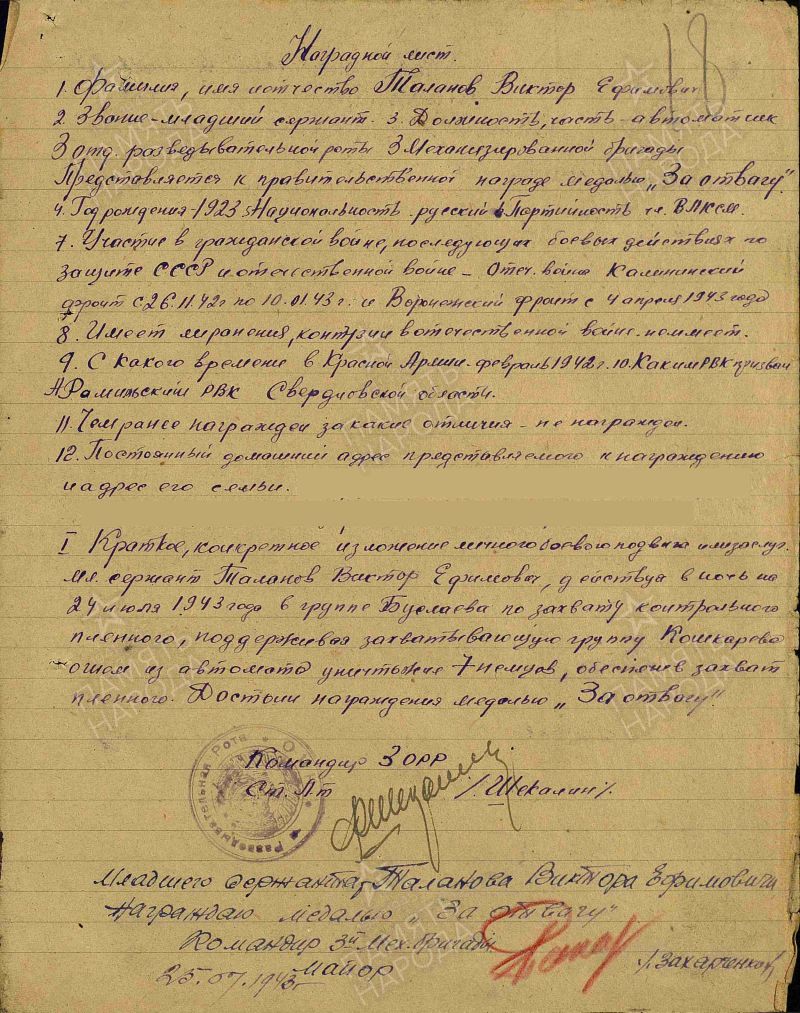 18
Наградной лист.
1. Фамилия, имя и отчество Таланов Виктор Ефимович
2. Звание - младший сержант. 3. Должность, часть - автоматчик
3 отд. разведывательной роты 3 Механизированной бригады
Представляется к правительственной награде медалью „За отвагу".
4. Год рождения - 1923 5 Национальность русский 6 Партийность чл. ВЛКСМ.
7. Участие в гражданской войне, последующих боевых действиях по
защите СССР и отечественной войне - Отеч. война Калининский
фронт с 26.11.42г по 10.01.43г. и Воронежский фронт с 4 апреля 1943 года
8. Имеет ли ранения, контузии в отечественной войне. не имеет.
9. С какого времени в Красной Армии - февраль 1942г. 10. Каким РВК призван
Арамильский РВК Свердловской области.
11. Чем ранее награжден за какие отличия - не награжден.
12. Постоянный домашний адрес представляемого к награждению
и адрес его семьи.
I Краткое, конкретное изложение личного боевого подвига или заслуг.
мл. сержант Таланов Виктор Ефимович, действуя в ночь на
24 июля 1943 года в группе Буслаева по захвату контрольного
пленного, поддерживая захватывающую группу Кошкарева
огнем из автомата уничтожил 7 немцов, обеспечив захват
пленного. Достоин награждения медалью „За отвагу".
Командир 3 ОРР
Ст. Л-т /Шекалин/.
Разведывательная Рота
Младшего сержанта Таланова Виктора Ефимовича
Награждаю медалью „За отвагу"
Командир 3й Мех. Бригады
майор /Захарченков/
25.07.1943г
ПАМЯТЬ НАРОДА